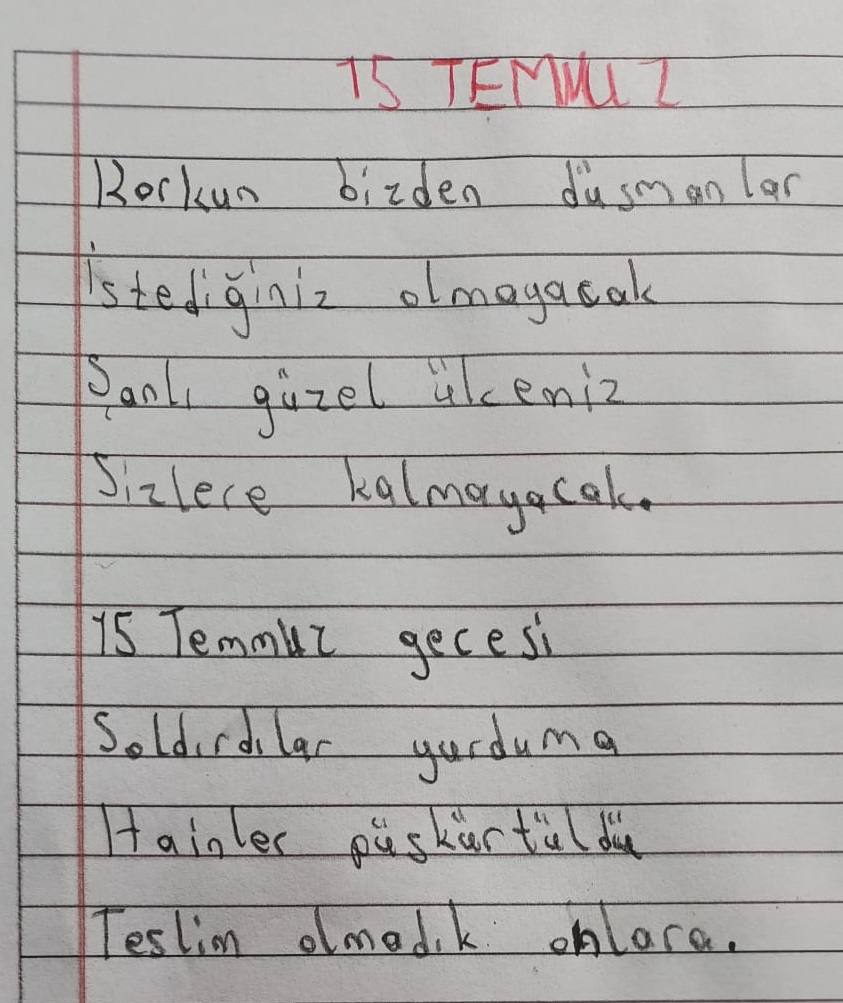 15 TEMMUZ
Korkun bizden düsmanlar
İstediğiniz olmayacak
Şanlı güzel ülkemiz
Sizlere kalmayacak.
15 Temmuz gecesi
Saldırdılar yurduma
Hainler püskürtüldü
Teslim olmadık onlara.